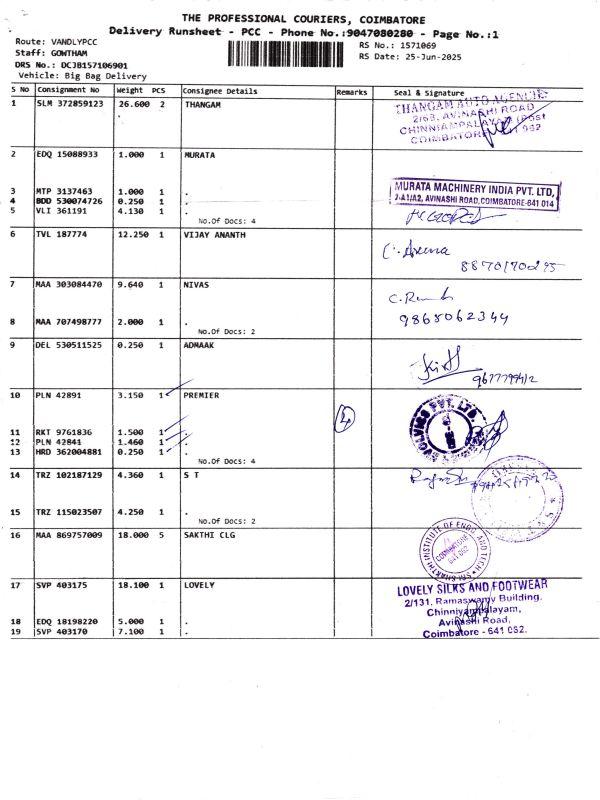 THE PROFESSIONAL COURIERS, COIMBATORE
Delivery Runsheet - PCC - Phone No.:9047080280 - Page No.:1
Route: VANDLYPCC
Staff: GOWTHAM
DRS No.: DCJB157106901
Vehicle: Big Bag Delivery
RS No.: 1571069
RS Date: 25-Jun-2025
S No Consignment No Weight PCS Consignee Details Remarks Seal & Signature
1 SLM 372859123 26.600 2 THANGAM
.
THANGAM AUTO AGENCIES
2/63, AVINASHI ROAD
CHINNIAMPALAYAM (Post
COIMBATORE
2 EDQ 15088933 1.000 1 MURATA
3 MTP 3137463 1.000 1 .
4 BDD 530074726 0.250 1 .
5 VLI 361191 4.130 1 .
No.Of Docs: 4
MURATA MACHINERY INDIA PVT. LTD,
7-A1/A2, AVINASHI ROAD,COIMBATORE-641 014
6 TVL 187774 12.250 1 VIJAY ANANTH
7 MAA 303084470 9.640 1 NIVAS
8 MAA 707498777 2.000 1 .
No.Of Docs: 2
9865062344
9 DEL 530511525 0.250 1 ADMAAK
10 PLN 42891 3.150 1 PREMIER
11 RKT 9761836 1.500 1 .
12 PLN 42841 1.460 1 .
13 HRD 362004881 0.250 1 .
No.Of Docs: 4
4
14 TRZ 102187129 4.360 1 S T
15 TRZ 115023507 4.250 1 .
No.Of Docs: 2
16 MAA 869757009 18.000 5 SAKTHI CLG
17 SVP 403175 18.100 1 LOVELY
18 EDQ 18198220 5.000 1 .
19 SVP 403170 7.100 1 .
LOVELY SILKS AND FOOTWEAR
2/131, Ramaswamy Building.
Chinniyampalayam,
Avinashi Road,
Coimbatore - 641 062.